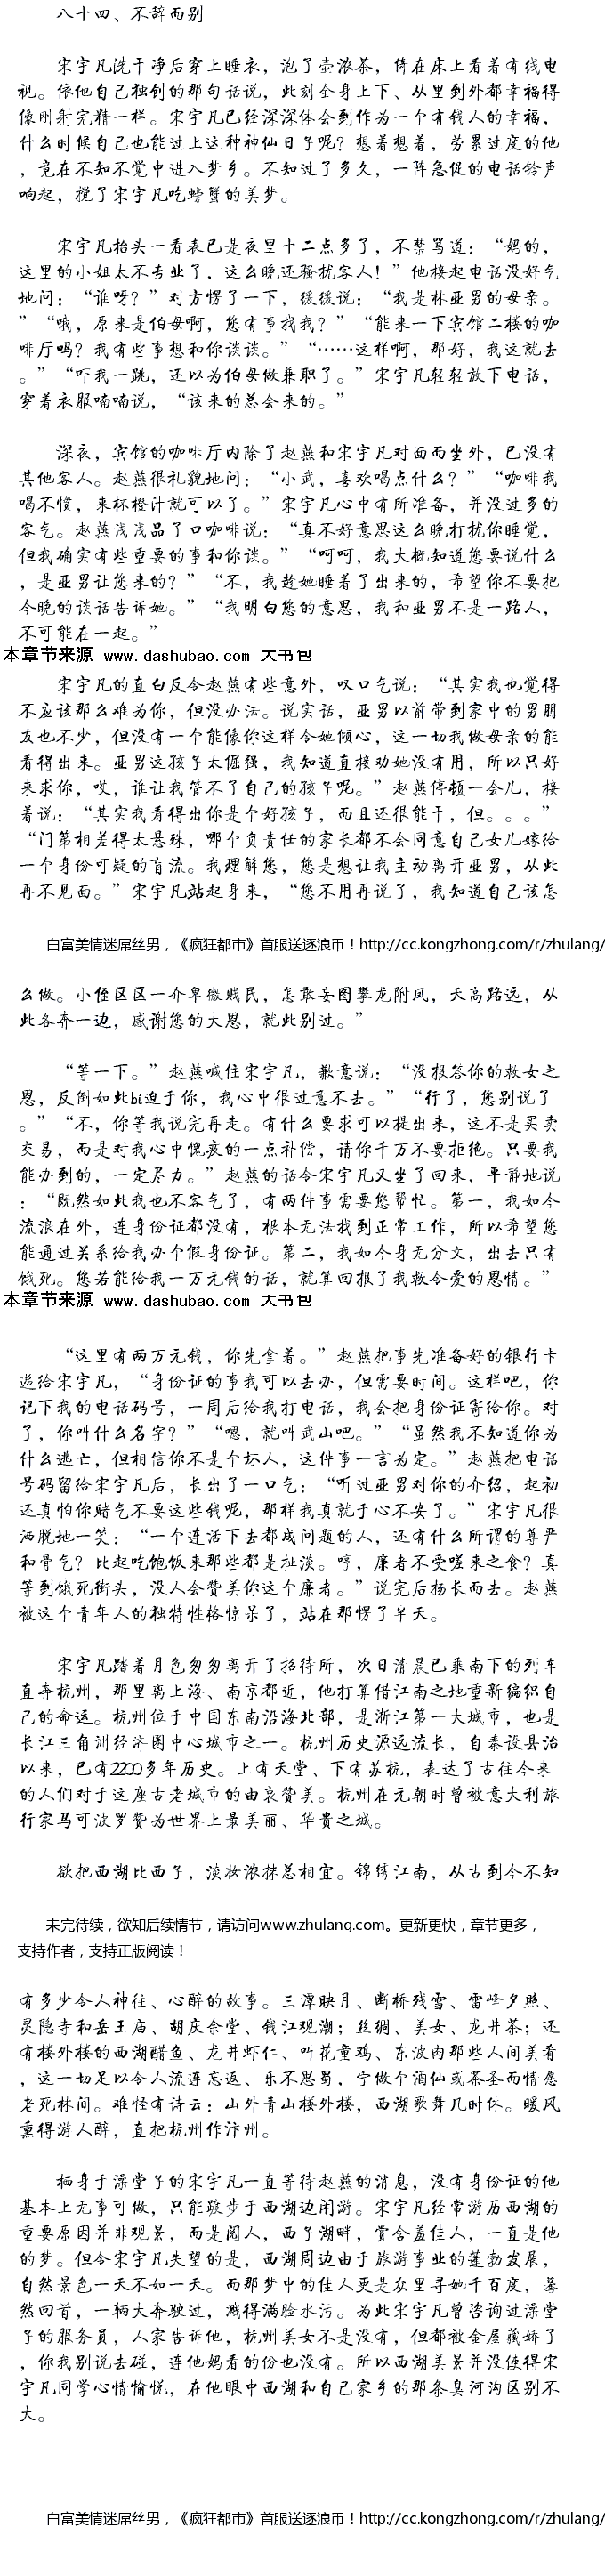 八十四、不辞而别
宋宇凡洗干净后穿上睡衣，泡了壶浓茶，倚在床上看着有线电
视。依他自己独创的那句话说，此刻全身上下、从里到外都幸福得
像刚射完精一样。宋宇凡已经深深体会到作为一个有钱人的幸福，
什么时候自己也能过上这种神仙日子呢？想着想着，劳累过度的他
，竟在不知不觉中进入梦乡。不知过了多久，一阵急促的电话铃声
响起，搅了宋宇凡吃螃蟹的美梦。
宋宇凡抬头一看表已是夜里十二点多了，不禁骂道：“妈的，
这里的小姐太不专业了，这么晚还骚扰客人！”他接起电话没好气
地问：“谁呀？”对方愣了一下，缓缓说：“我是林亚男的母亲。
”“哦，原来是伯母啊，您有事找我？”“能来一下宾馆二楼的咖
啡厅吗？我有些事想和你谈谈。”“……这样啊，那好，我这就去
。”“吓我一跳，还以为伯母做兼职了。”宋宇凡轻轻放下电话，
穿着衣服喃喃说，“该来的总会来的。”
深夜，宾馆的咖啡厅内除了赵燕和宋宇凡对面而坐外，已没有
其他客人。赵燕很礼貌地问：“小武，喜欢喝点什么？”“咖啡我
喝不惯，来杯橙汁就可以了。”宋宇凡心中有所准备，并没过多的
客气。赵燕浅浅品了口咖啡说：“真不好意思这么晚打扰你睡觉，
但我确实有些重要的事和你谈。”“呵呵，我大概知道您要说什么
，是亚男让您来的？”“不，我趁她睡着了出来的，希望你不要把
今晚的谈话告诉她。”“我明白您的意思，我和亚男不是一路人，
不可能在一起。”
本章节来源 www.dashubao.com 大书包
宋宇凡的直白反令赵燕有些意外，叹口气说：“其实我也觉得
不应该那么难为你，但没办法。说实话，亚男以前带到家中的男朋
友也不少，但没有一个能像你这样令她倾心，这一切我做母亲的能
看得出来。亚男这孩子太倔强，我知道直接劝她没有用，所以只好
来求你，哎，谁让我管不了自己的孩子呢。”赵燕停顿一会儿，接
着说：“其实我看得出你是个好孩子，而且还很能干，但。。。”
“门第相差得太悬殊，哪个负责任的家长都不会同意自己女儿嫁给
一个身份可疑的盲流。我理解您，您是想让我主动离开亚男，从此
再不见面。”宋宇凡站起身来，“您不用再说了，我知道自己该怎
白富美情迷屌丝男，《疯狂都市》首服送逐浪币！http://cc.kongzhong.com/r/zhulang/
么做。小侄区区一介卑微贱民，怎敢妄图攀龙附凤，天高路远，从
此各奔一边，感谢您的大恩，就此别过。”
“等一下。”赵燕喊住宋宇凡，歉意说：“没报答你的救女之
恩，反倒如此bi迫于你，我心中很过意不去。”“行了，您别说了
。”“不，你等我说完再走。有什么要求可以提出来，这不是买卖
交易，而是对我心中愧疚的一点补偿，请你千万不要拒绝。只要我
能办到的，一定尽力。”赵燕的话令宋宇凡又坐了回来，平静地说
：“既然如此我也不客气了，有两件事需要您帮忙。第一，我如今
流浪在外，连身份证都没有，根本无法找到正常工作，所以希望您
能通过关系给我办个假身份证。第二，我如今身无分文，出去只有
饿死。您若能给我一万元钱的话，就算回报了我救令爱的恩情。”
本章节来源 www.dashubao.com 大书包
“这里有两万元钱，你先拿着。”赵燕把事先准备好的银行卡
递给宋宇凡，“身份证的事我可以去办，但需要时间。这样吧，你
记下我的电话码号，一周后给我打电话，我会把身份证寄给你。对
了，你叫什么名字？”“嗯，就叫武山吧。”“虽然我不知道你为
什么逃亡，但相信你不是个坏人，这件事一言为定。”赵燕把电话
号码留给宋宇凡后，长出了一口气：“听过亚男对你的介绍，起初
还真怕你赌气不要这些钱呢，那样我真就于心不安了。”宋宇凡很
洒脱地一笑：“一个连活下去都成问题的人，还有什么所谓的尊严
和骨气？比起吃饱饭来那些都是扯淡。哼，廉者不受嗟来之食？真
等到饿死街头，没人会赞美你这个廉者。”说完后扬长而去。赵燕
被这个青年人的独特性格惊呆了，站在那愣了半天。
宋宇凡踏着月色匆匆离开了招待所，次日清晨已乘南下的列车
直奔杭州，那里离上海、南京都近，他打算借江南之地重新编织自
己的命运。杭州位于中国东南沿海北部，是浙江第一大城市，也是
长江三角洲经济圈中心城市之一。杭州历史源远流长，自秦设县治
以来，已有2200多年历史。上有天堂、下有苏杭，表达了古往今来
的人们对于这座古老城市的由衷赞美。杭州在元朝时曾被意大利旅
行家马可波罗赞为世界上最美丽、华贵之城。
欲把西湖比西子，淡妆浓抹总相宜。锦绣江南，从古到今不知
未完待续，欲知后续情节，请访问www.zhulang.com。更新更快，章节更多，
支持作者，支持正版阅读！
有多少令人神往、心醉的故事。三潭映月、断桥残雪、雷峰夕照、
灵隐寺和岳王庙、胡庆余堂、钱江观潮；丝绸、美女、龙井茶；还
有楼外楼的西湖醋鱼、龙井虾仁、叫花童鸡、东波肉那些人间美肴
，这一切足以令人流连忘返、乐不思蜀，宁做个酒仙或茶圣而情愿
老死林间。难怪有诗云：山外青山楼外楼，西湖歌舞几时休。暖风
熏得游人醉，直把杭州作汴州。
栖身于澡堂子的宋宇凡一直等待赵燕的消息，没有身份证的他
基本上无事可做，只能踱步于西湖边闲游。宋宇凡经常游历西湖的
重要原因并非观景，而是阅人，西子湖畔，赏含羞佳人，一直是他
的梦。但令宋宇凡失望的是，西湖周边由于旅游事业的蓬勃发展，
自然景色一天不如一天。而那梦中的佳人更是众里寻她千百度，蓦
然回首，一辆大奔驶过，溅得满脸水污。为此宋宇凡曾咨询过澡堂
子的服务员，人家告诉他，杭州美女不是没有，但都被金屋藏娇了
，你我别说去碰，连他妈看的份也没有。所以西湖美景并没使得宋
宇凡同学心情愉悦，在他眼中西湖和自己家乡的那条臭河沟区别不
大。
白富美情迷屌丝男，《疯狂都市》首服送逐浪币！http://cc.kongzhong.com/r/zhulang/